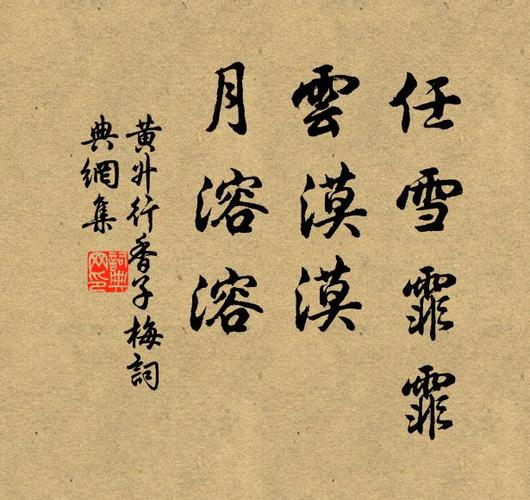 任雪霏霏
雲漠漠
月溶溶
黄升行香子梅詞
典網集
詞典網印